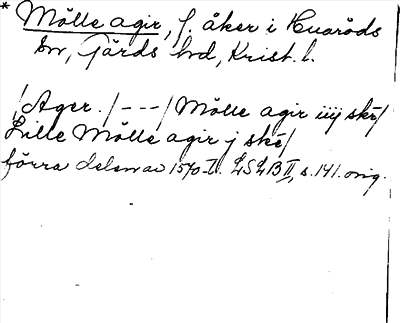 * Mölle agir, f. åker i Huaröds
sn, Gärds hd, Krist. l.
/Ager. / - - - / Mölle agir iiij skē/
Lille Mölle agir j skē/
förra delen av 1570-t. LSLB II, s. 141. orig.